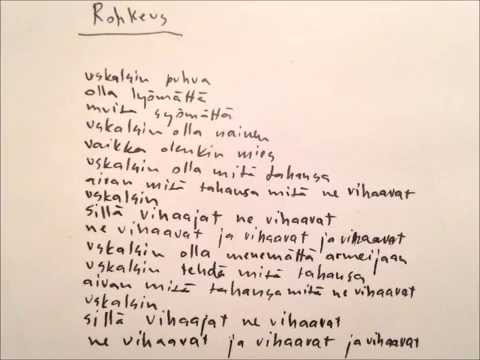 Rohkeus
uskalsin puhua
olla lyömättä
muita syömättä
uskalsin olla nainen
vaikka olenkin mies
uskalsin olla mitä tahansa
aivan mitä tahansa mitä ne vihaavat
uskalsin
sillä vihaajat ne vihaavat
ne vihaavat ja vihaavat ja vihaavat
uskalsin olla menemättä armeijaan
uskalsin tehdä mitä tahansa
aivan mitä tahansa mitä ne vihaavat
uskalsin
sillä vihaajat ne vihaavat
ne vihaavat ja vihaavat ja vihaavat